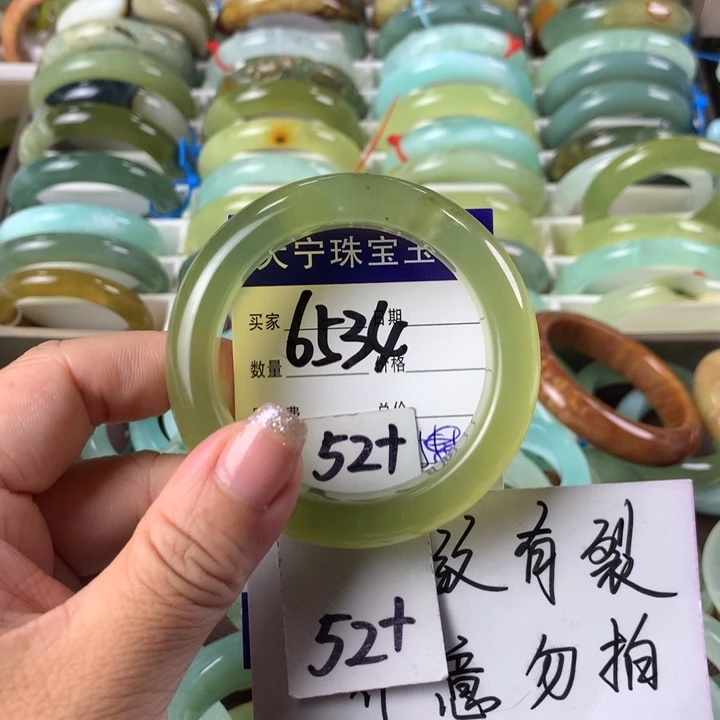 宁珠宝玉
买家 日期
6534
数量 价格
费 总价
52+
52+
纹有裂
意勿拍